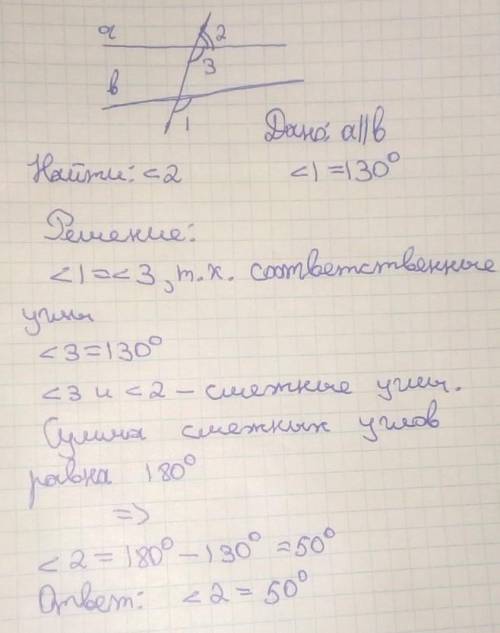 a 2
3
b
1
Дано: a||b
Найти: <2 <1=130°
Решение:
<1=<3, т.к. соответственные
углы
<3=130°
<3 и <2 - смежные углы.
Сумма смежных углов
равна 180°
=>
<2=180°-130°=50°
Ответ: <2=50°